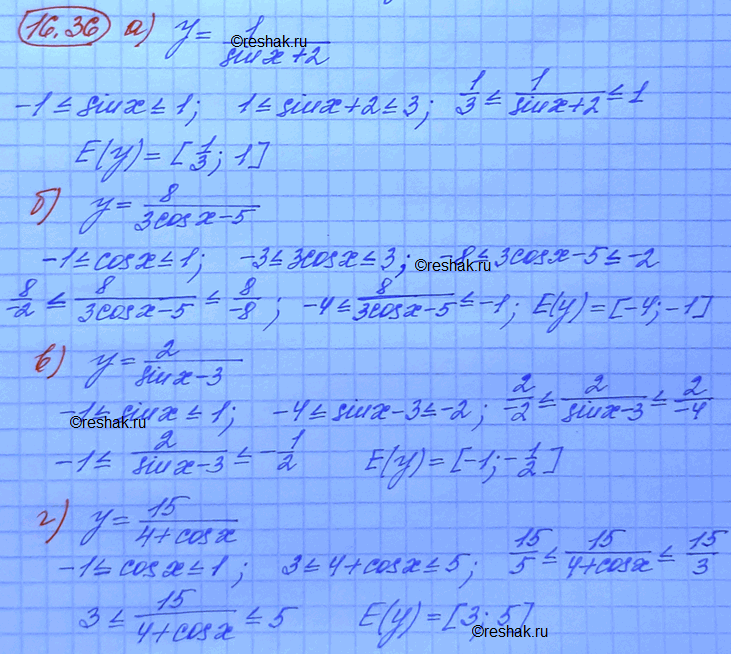 16.36 а) y = 1/(sin x + 2)
©reshak.ru
-1 ≤ sin x ≤ 1; 1 ≤ sin x + 2 ≤ 3; 1/3 ≤ 1/(sin x + 2) ≤ 1
E(y) = [1/3; 1]
б) y = 8/(3cos x - 5)
-1 ≤ cos x ≤ 1; -3 ≤ 3cos x ≤ 3; -8 ≤ 3cos x - 5 ≤ -2
©reshak.ru
8/-2 ≤ 8/(3cos x - 5) ≤ 8/-8; -4 ≤ 8/(3cos x - 5) ≤ -1; E(y) = [-4; -1]
в) y = 2/(sin x - 3)
-1 ≤ sin x ≤ 1; -4 ≤ sin x - 3 ≤ -2; 2/-2 ≤ 2/(sin x - 3) ≤ 2/-4
©reshak.ru
-1 ≤ 2/(sin x - 3) ≤ -1/2 E(y) = [-1; -1/2]
г) y = 15/(4 + cos x)
-1 ≤ cos x ≤ 1; 3 ≤ 4 + cos x ≤ 5; 15/5 ≤ 15/(4 + cos x) ≤ 15/3
3 ≤ 15/(4 + cos x) ≤ 5 E(y) = [3; 5]
©reshak.ru